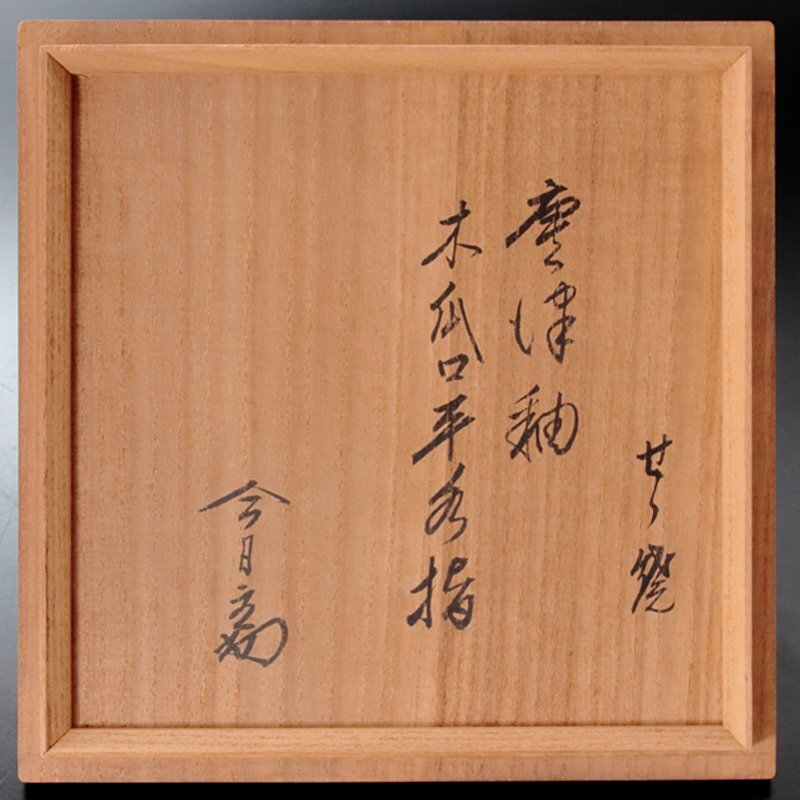 せゝ焼
唐津釉
木瓜口平水指
今日庵